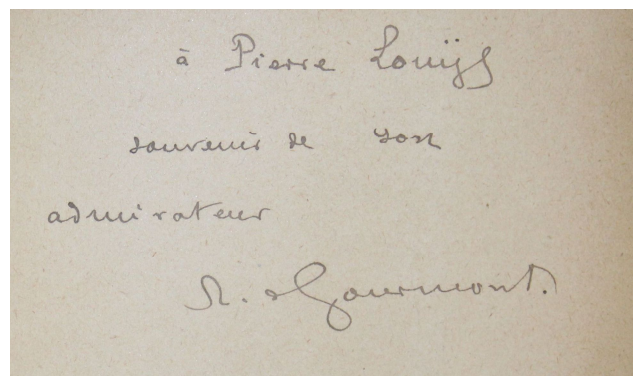 à Pierre Louÿs
souvenir de son
admirateur
R. de Gourmont.